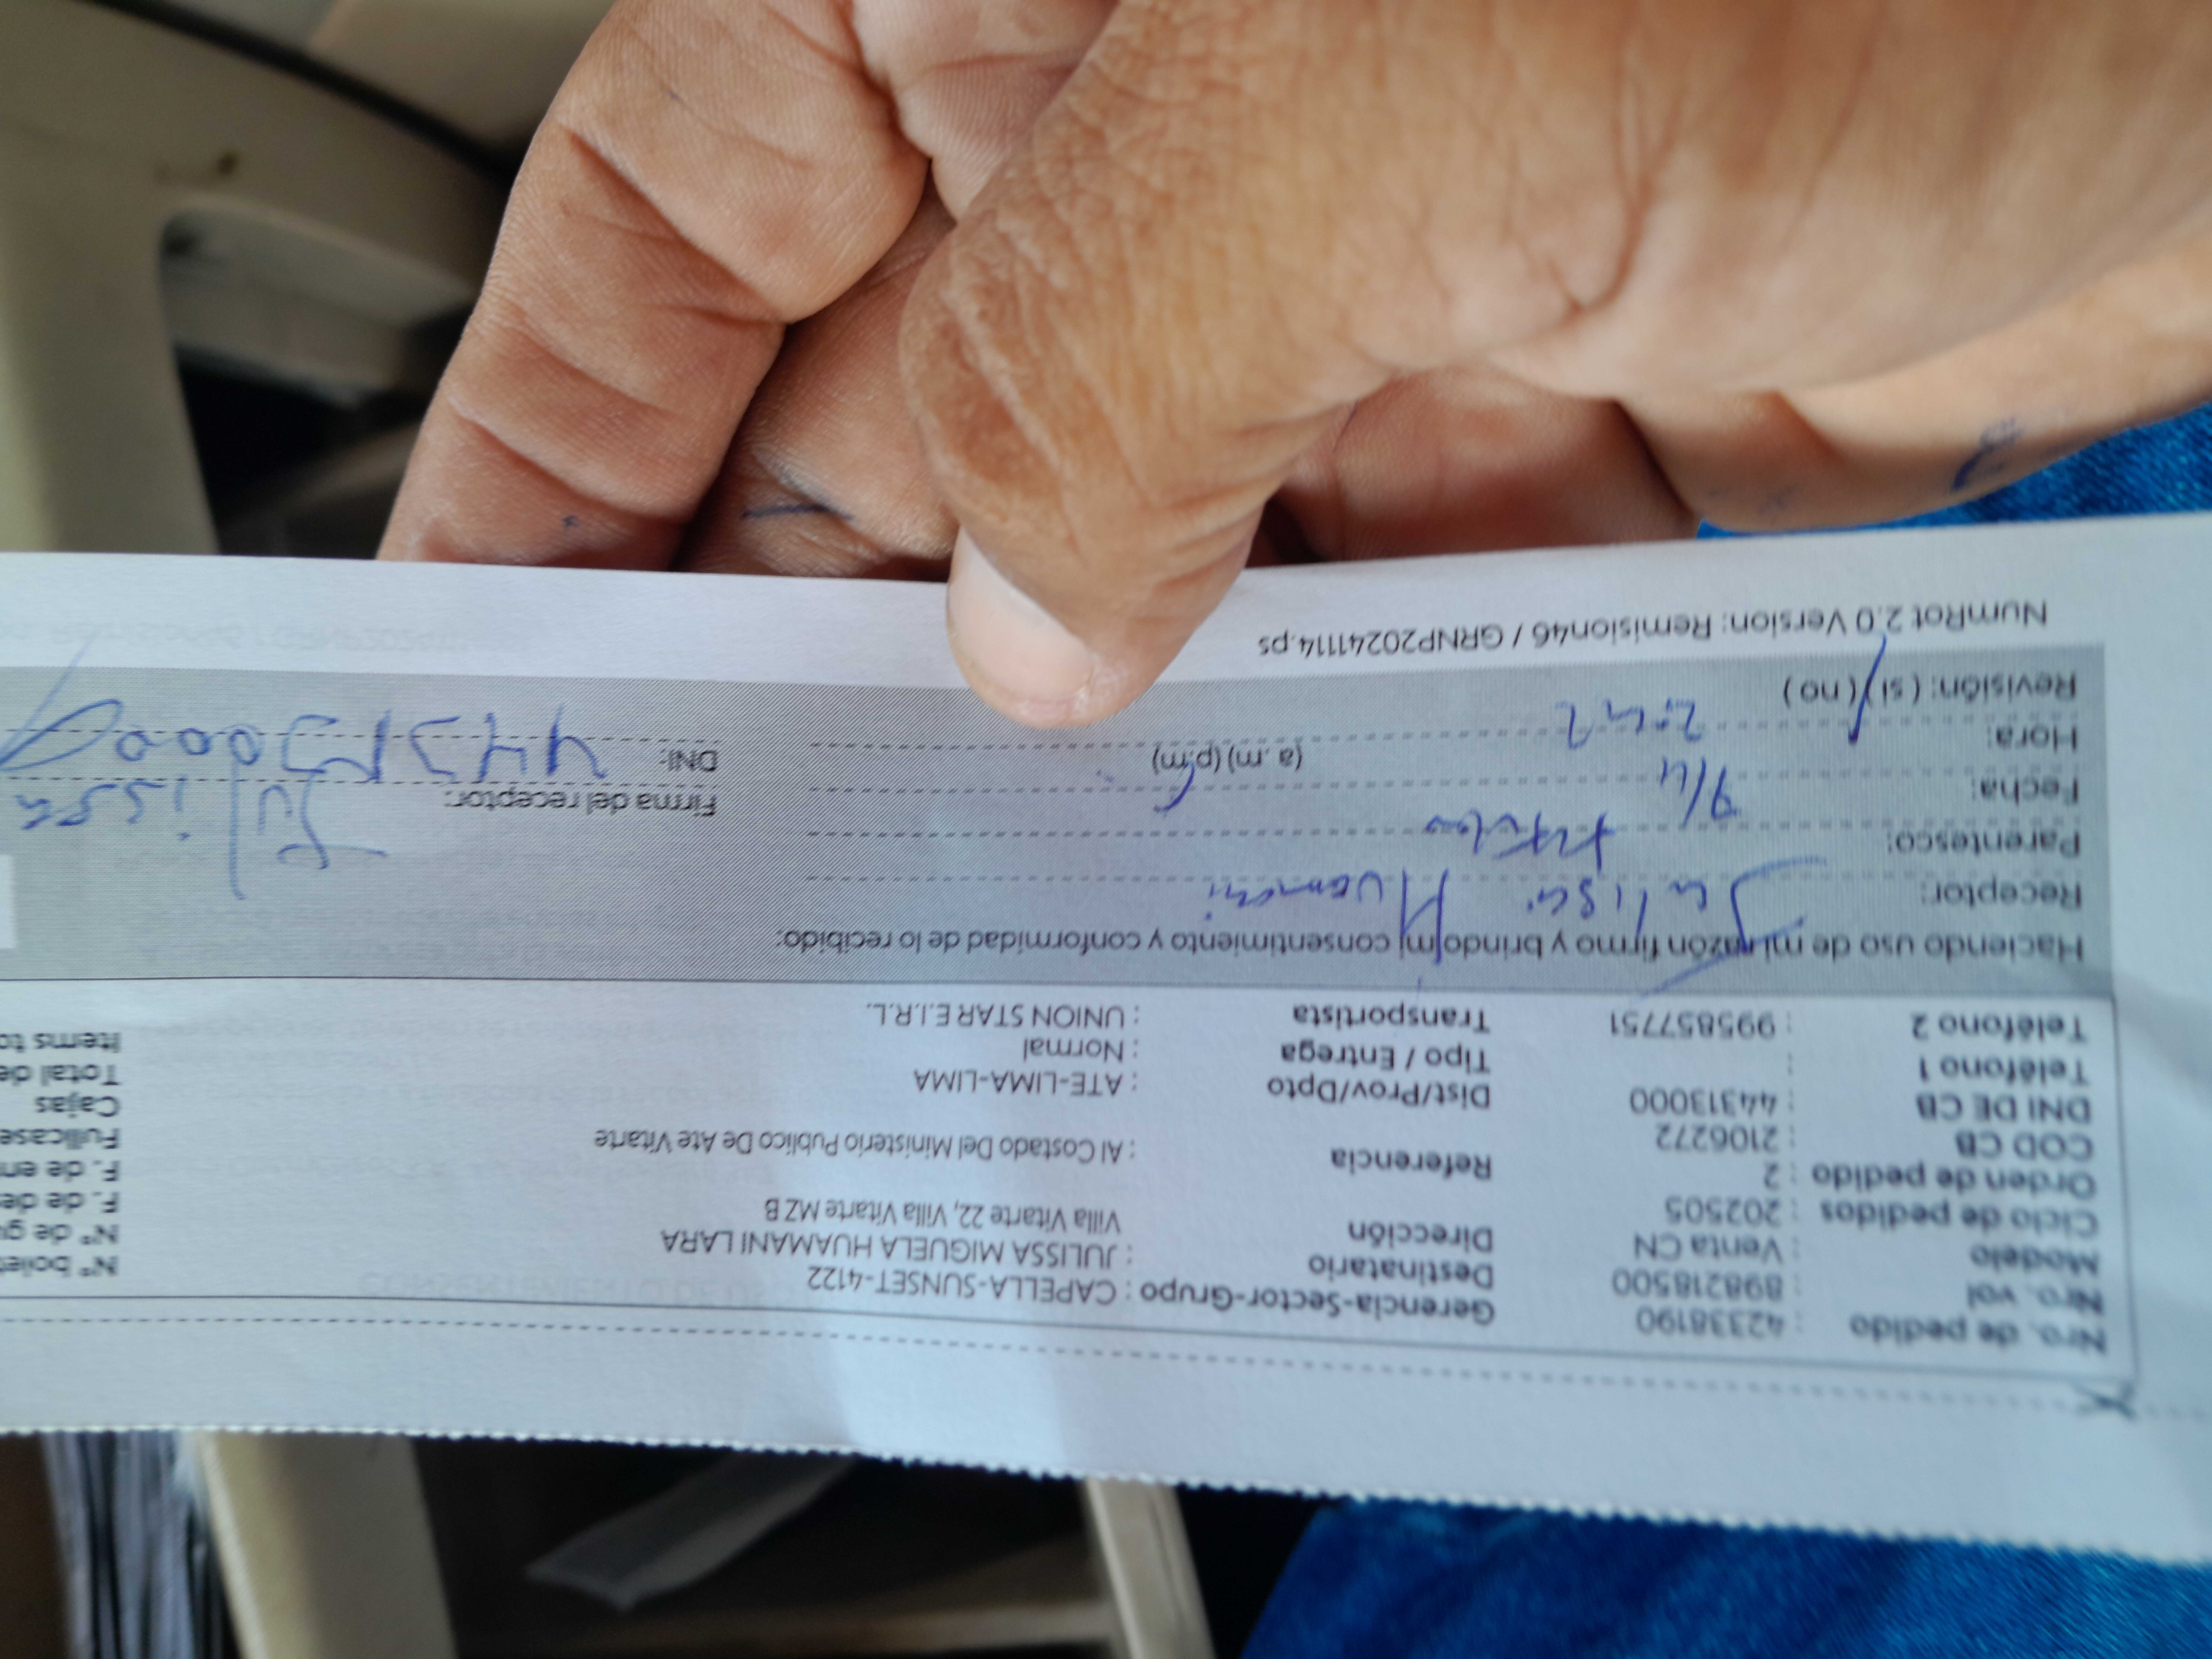 Nro. de pedido : 42338190 Gerencia-Sector-Grupo : CAPELLA-SUNSET-4122
Nro. vol : 898218500 Destinatario : JULISSA MIGUELA HUAMANI LARA Nº bole
Modelo : Venta CN Dirección Villa Vitarte 22, Villa Vitarte MZ B Nº de g
Ciclo de pedidos : 202505 F. de de
Orden de pedido : 2 Referencia : Al Costado Del Ministerio Publico De Ate Vitarte F. de en
COD CB : 2106272 Fullcase
DNI DE CB : 44313000 Dist/Prov/Dpto : ATE-LIMA-LIMA Cajas
Teléfono 1 : Tipo / Entrega : Normal Total de
Teléfono 2 : 995857751 Transportista : UNION STAR E.I.R.L. Items to
Haciendo uso de mi razón firmo y brindo mi consentimiento y conformidad de lo recibido:
Receptor: Julisa Huamani
Parentesco: Firma del receptor: Julissa
Fecha: 9/4
Hora: (a. m) (p.m) DNI: 44313000
Revisión: ( si ) ( no )
NumRot 2.0 Version: Remision46 / GRNP20241114.ps